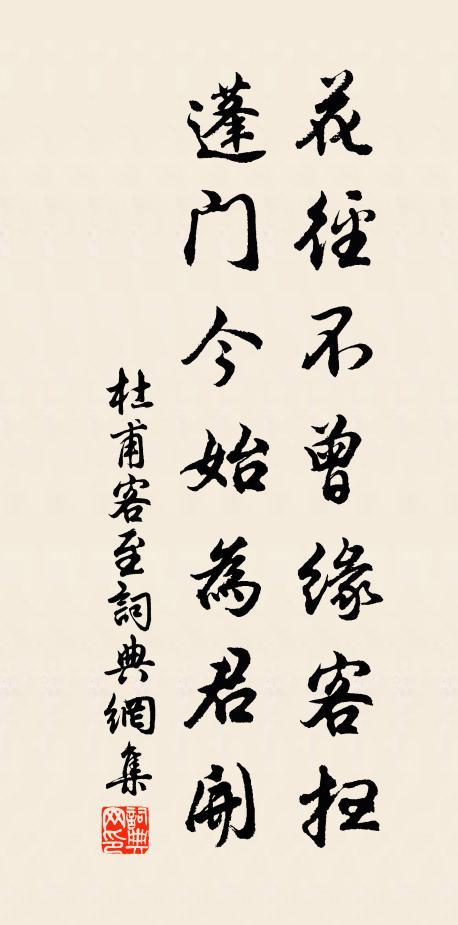 花徑不曾緣客掃
蓬門今始為君開
杜甫客至詞典網集
詞典網印